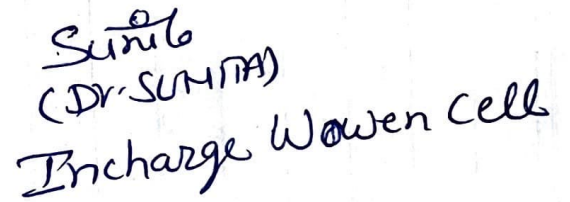 Sunita
(Dr. SUNITA)
Incharge Women Cell